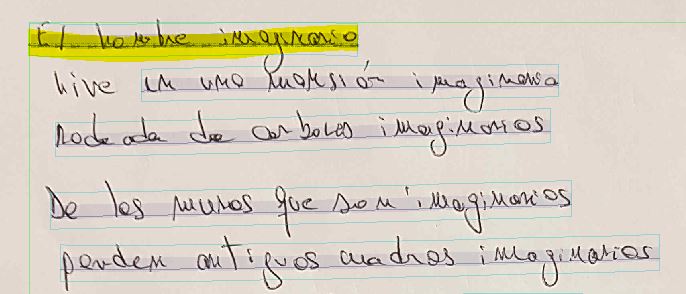 El hombre imaginario
vive en una mansión imaginaria
rodeada de arboles imaginarios
De los muros que son imaginarios
penden antiguos cuadros imaginarios